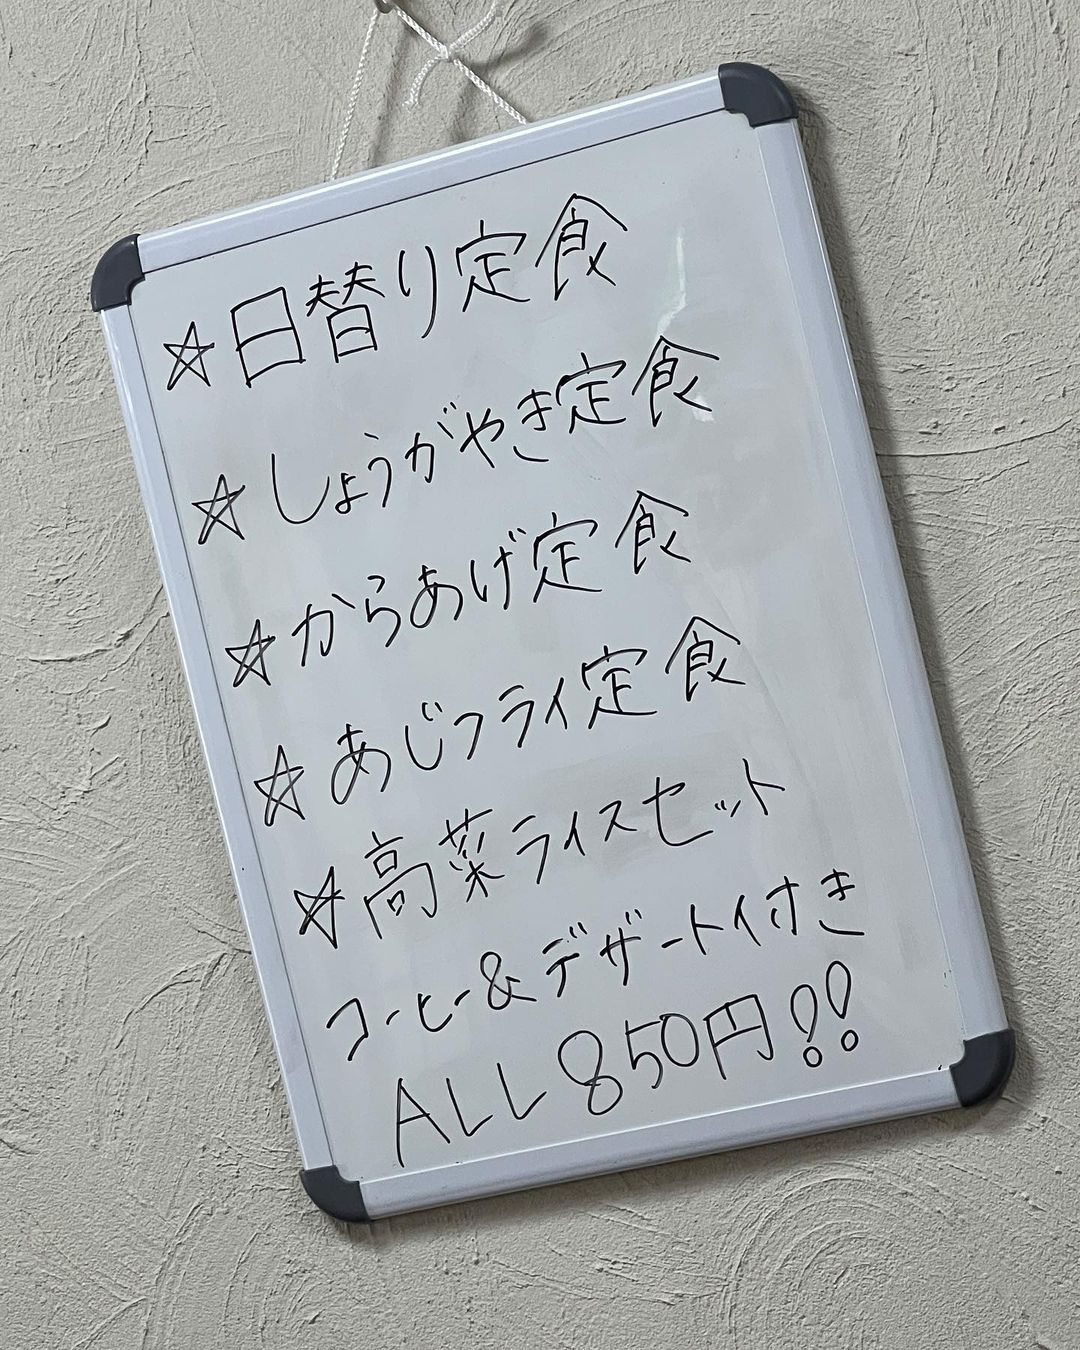 ☆日替り定食
☆しょうがやき定食
☆からあげ定食
☆あじフライ定食
☆高菜ライスセット
コーヒー&デザート付き
ALL 850円!!